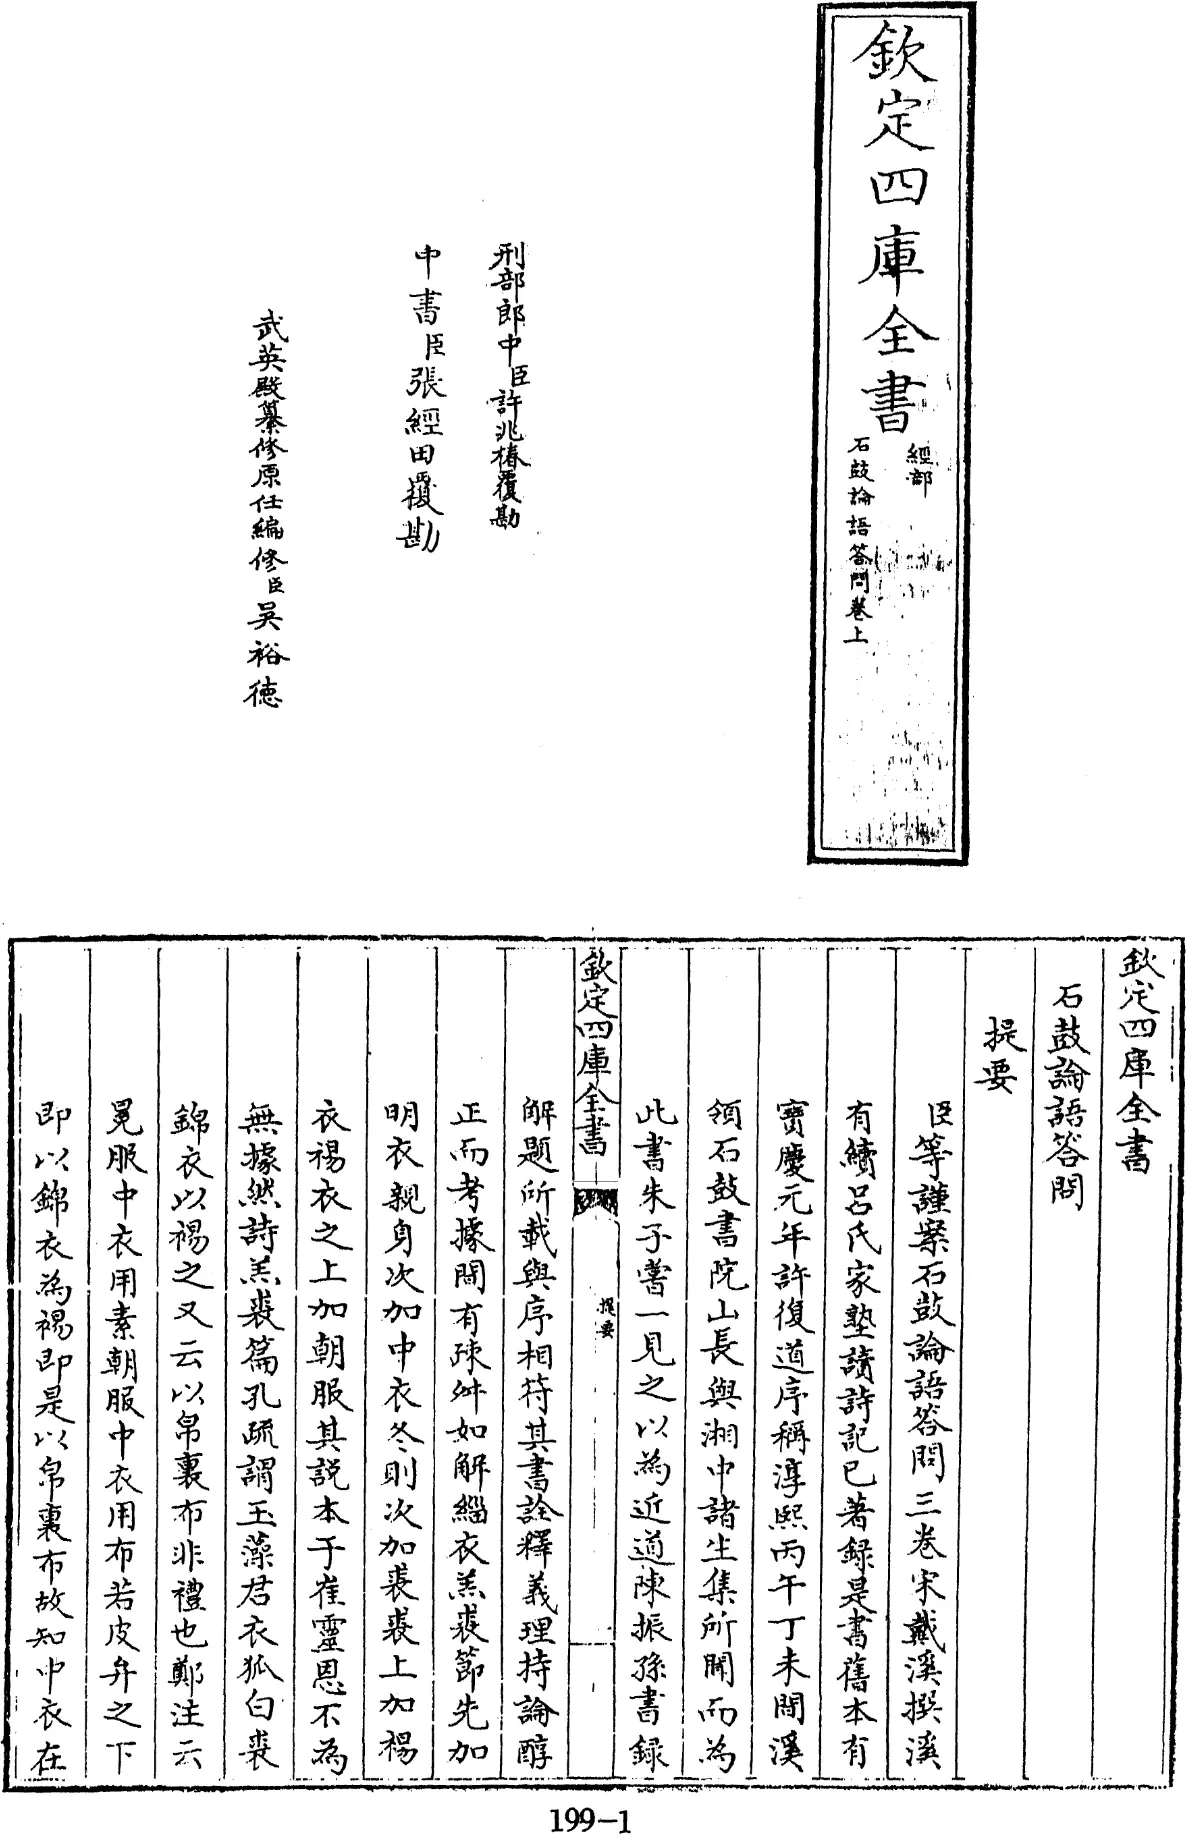 欽定四庫全書
經部
石鼓論語答問卷上
刑部郎中臣許兆椿覆勘
中書臣張經田覆勘
武英殿纂修原任編修臣吳裕德
欽定四庫全書
石鼓論語答問
提要
臣等謹案石鼓論語答問三卷宋戴溪撰溪
有續呂氏家塾讀詩記已著録是書舊本有
寶慶元年許復道序稱淳熙丙午丁未間溪
領石鼓書院山長與湘中諸生集所聞而為
此書朱子嘗一見之以為近道陳振孫書録
欽定四庫全書
提要
解題所載與序相符其書詮釋義理持論醇
正而考據間有疎舛如解緇衣羔裘節先加
明衣親身次加中衣冬則次加裘裘上加裼
衣裼衣之上加朝服其説本于崔靈恩不為
無據然詩羔裘篇孔疏謂玉藻君衣狐白裘
錦衣以裼之又云以帛裏布非禮也鄭注云
冕服中衣用素朝服中衣用布若皮弁之下
即以錦衣為裼即是以帛裏布故知中衣在
199-1